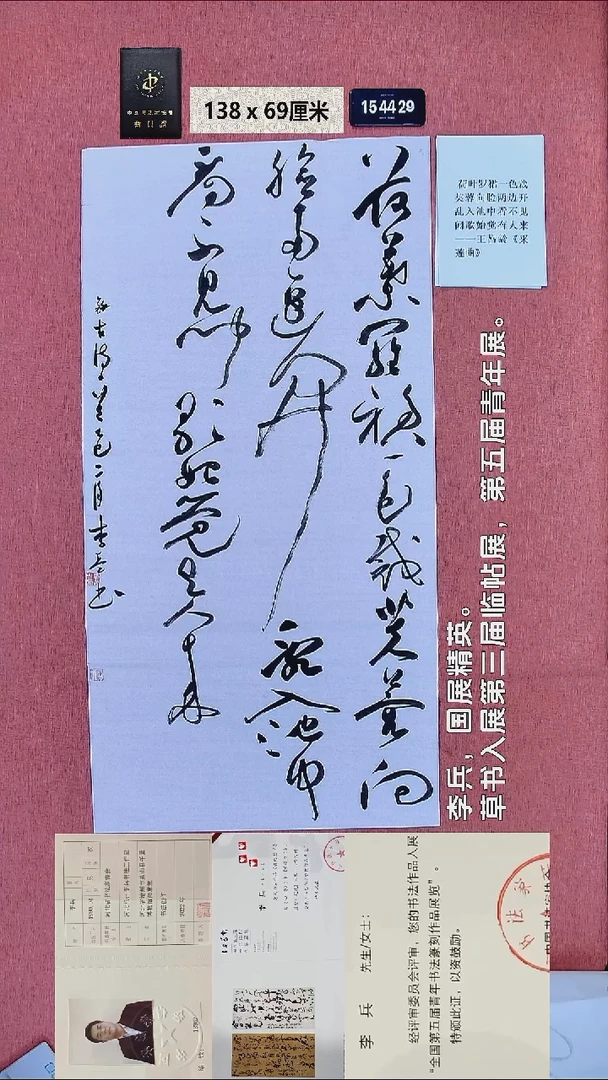 中国书法家协会
会员证
138 x 69厘米
154429
荷叶罗裙一色裁
芙蓉向脸两边开
乱入池中看不见
闻歌始觉有人来
——王昌龄《采
莲曲》
荷葉羅裙一色裁芙蓉向
脸两邊開亂入池中
看不見聞歌始覺有人来
乙巳二月李兵书
李兵，国展精英。
草书入展第三届临帖展，第五届青年展。
李 兵 先生/女士：
经评审委员会评审，您的书法作品入展
“全国第五届青年书法篆刻作品展览”。
特颁此证，以资鼓励。